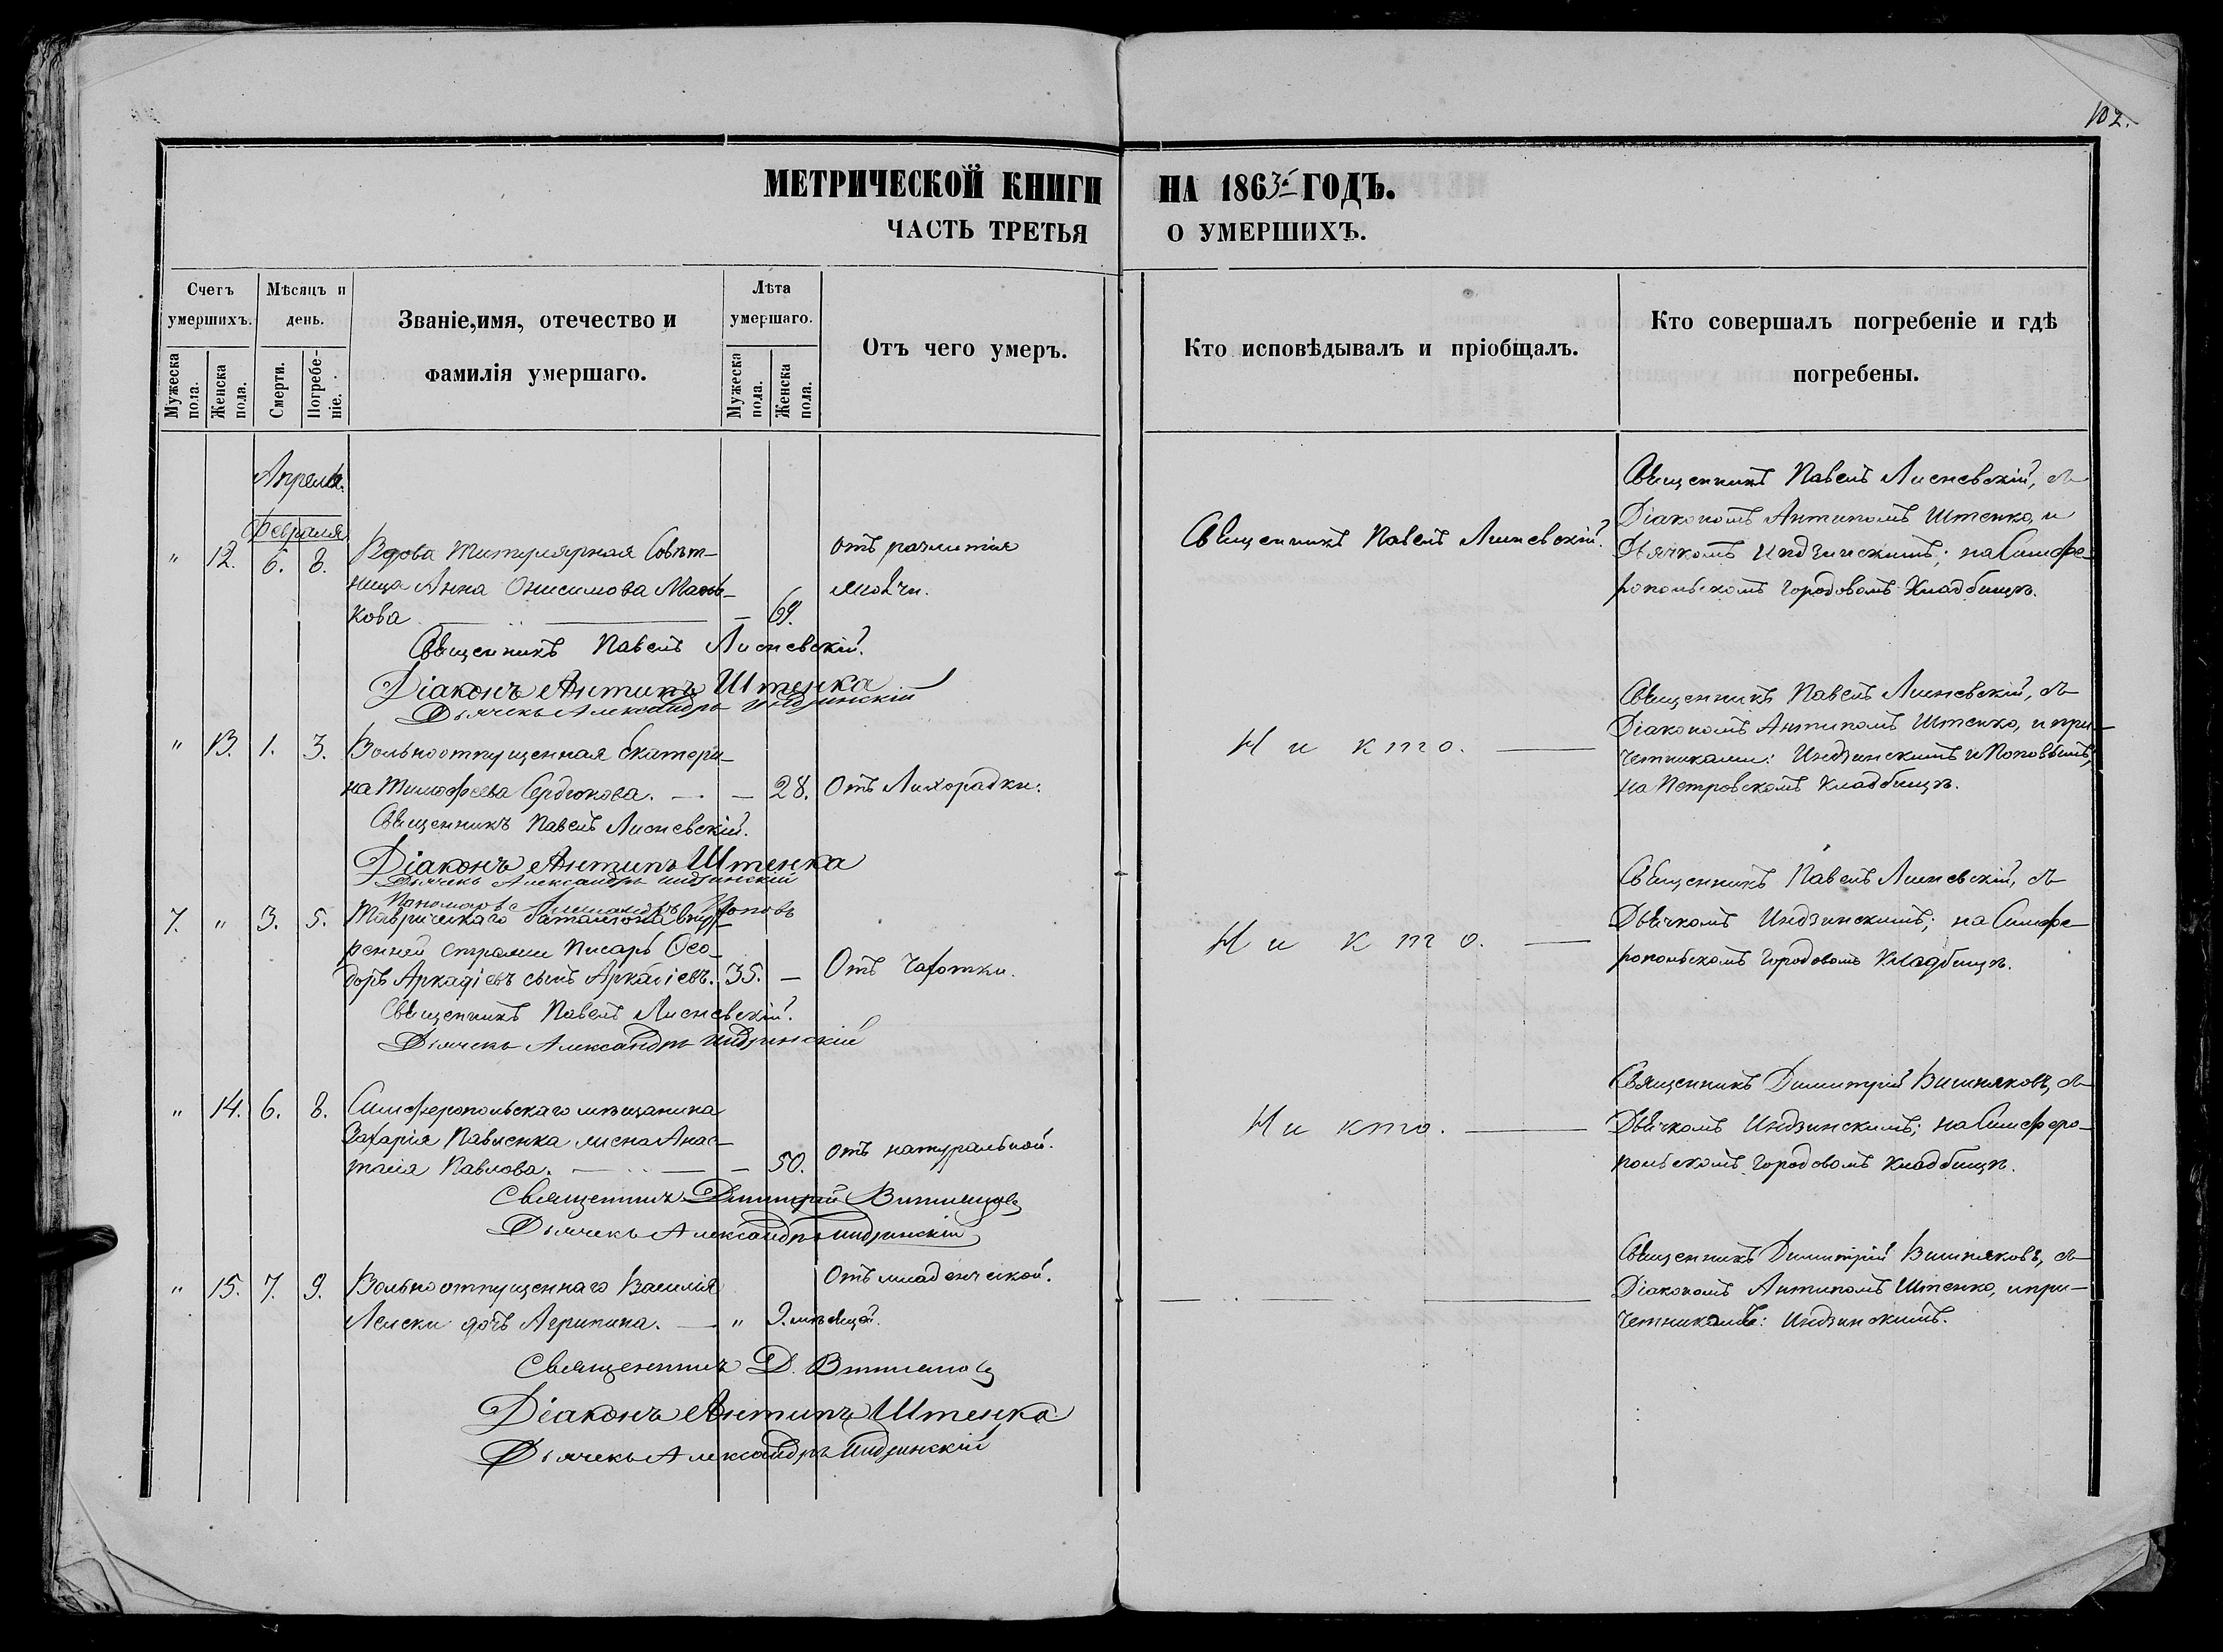 102.
МЕТРИЧЕСКОЙ КНИГИ НА 1863й ГОДЪ.
ЧАСТЬ ТРЕТЬЯ О УМЕРШИХЪ.
Счетъ умершихъ.
Мужеска пола.
Женска пола.
Мѣсяцъ и день.
Смерти.
Погребе-ніе.
Званіе, имя, отечество и
фамилія умершаго.
Лѣта умершаго.
Мужеска пола.
Женска пола.
Отъ чего умеръ.
Кто исповѣдывалъ и пріобщалъ.
Кто совершалъ погребеніе и гдѣ
погребены.
Апрель.
Февраля
" 12. 6. 8.
Вдова Титулярная Совѣт-
ница Анна Онисимова Мань-
кова — — 69.
отъ разлитія
жолчи.
Священникъ Павелъ Лисневскій.
Священникъ Павелъ Лисневскій, съ
Діакономъ Антипомъ Штенко, и
Дьячкомъ Индзинскимъ; на Симфе-
ропольскомъ городовомъ Кладбищѣ.
Священникъ Павелъ Лисневскій.
Діаконъ Антипъ Штенка
Дьячекъ Александръ Индзинскій
" 13. 1. 3.
Вольноотпущенная Екатери-
на Тимофеева Сердюкова. — — 28. Отъ Лихорадки.
Ни кто. —
Священникъ Павелъ Лисневскій, съ
Діакономъ Антипомъ Штенко, и при-
четниками: Индзинскимъ и Поповымъ;
на Петровскомъ Кладбищѣ.
Священникъ Павелъ Лисневскій.
Діаконъ Антипъ Штенка
Дьячекъ Александръ Индзинскій
Пономарь Поповъ
7. " 3. 5.
Таврическаго баталіона внут-
ренней стражи Писарь Ѳео-
доръ Аркадіевъ сынъ Аркадіевъ. 35. — Отъ Чахотки.
Ни кто. —
Священникъ Павелъ Лисневскій, съ
Дьячкомъ Индзинскимъ; на Симфе-
ропольскомъ городовомъ Кладбищѣ.
Священникъ Павелъ Лисневскій.
Дьячекъ Александръ Индзинскій
" 14. 6. 8.
Симферопольскаго мѣщанина
Захарія Павленка жена Анас-
тасія Павлова. — — 50. отъ натуральной.
Ни кто. —
Священникъ Димитрій Вишняковъ, съ
Дьячкомъ Индзинскимъ; на Симферо-
польскомъ городовомъ кладбищѣ.
Священникъ Димитрій Вишняковъ
Дьячекъ Александръ Индзинскій
" 15. 7. 9.
Вольноотпущеннаго Василія
дочь Агрипина. — " 9. мѣсяцей.
Отъ младенческой.
Священникъ Димитрій Вишняковъ, съ
Діакономъ Антипомъ Штенко, и при-
четникомъ: Индзинскимъ.
Священникъ Д. Вишняковъ
Діаконъ Антипъ Штенка
Дьячекъ Александръ Индзинскій